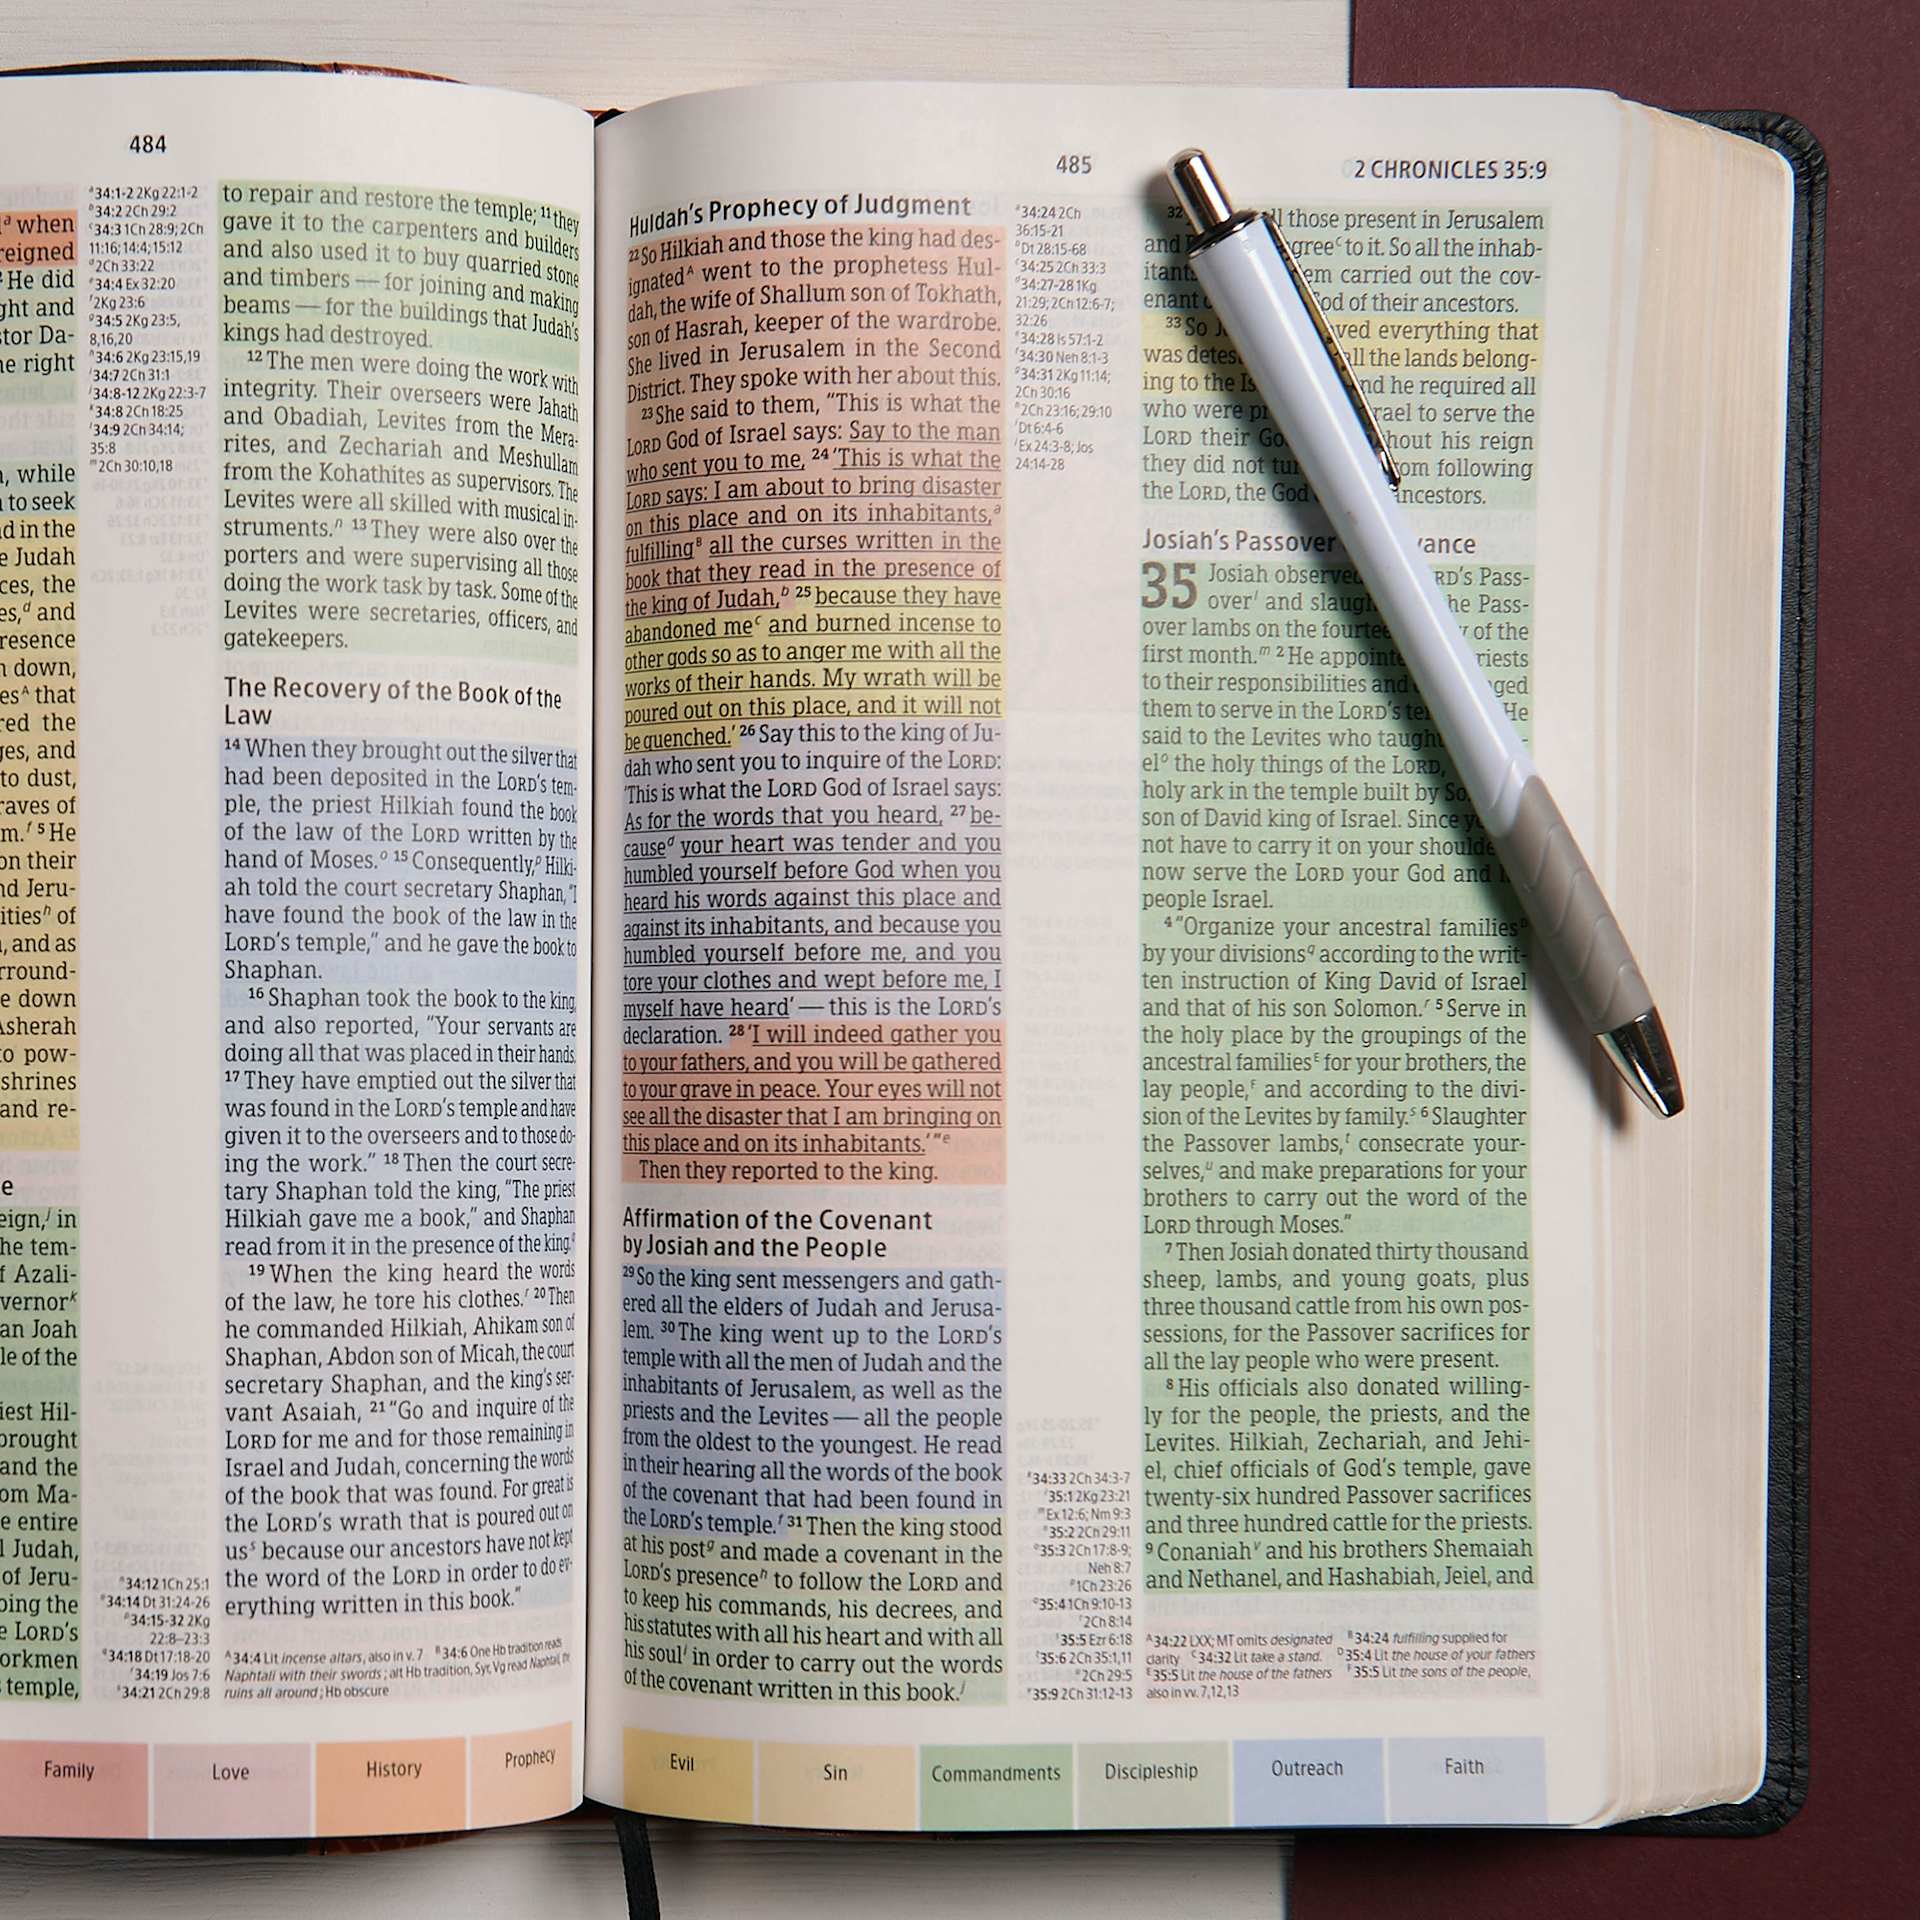 484
ᵃ when
reigned
He did
ght and
stor Da-
he right
, while
to seek
d in the
e Judah
ces, the
es,ᵈ and
resence
n down,
esᴬ that
red the
ges, and
to dust,
raves of
m.ᶠ ⁵ He
on their
nd Jeru-
itiesⁿ of
, and as
rround-
e down
Asherah
to pow-
shrines
and re-
e
eign,ʲ in
he tem-
f Azali-
vernorᵏ
an Joah
le of the
iest Hil-
brought
and the
om Ma-
e entire
l Judah,
of Jeru-
oing the
e LORD's
orkmen
temple,
ᵃ34:1-2 2Kg 22:1-2
ᵇ34:2 2Ch 29:2
ᶜ34:3 1Ch 28:9; 2Ch
11:16; 14:4; 15:12
ᵈ2Ch 33:22
ᵉ34:4 Ex 32:20
ᶠ2Kg 23:6
ᵍ34:5 2Kg 23:5,
8,16,20
ʰ34:6 2Kg 23:15,19
ⁱ34:7 2Ch 31:1
ʲ34:8-12 2Kg 22:3-7
ᵏ34:8 2Ch 18:25
ˡ34:9 2Ch 34:14;
35:8
ᵐ2Ch 30:10,18
ⁿ34:12 1Ch 25:1
ᵒ34:14 Dt 31:24-26
ᵖ34:15-32 2Kg
22:8–23:3
ᑫ34:18 Dt 17:18-20
ʳ34:19 Jos 7:6
ˢ34:21 2Ch 29:8
to repair and restore the temple; ¹¹ they
gave it to the carpenters and builders
and also used it to buy quarried stone
and timbers — for joining and making
beams — for the buildings that Judah's
kings had destroyed.
¹² The men were doing the work with
integrity. Their overseers were Jahath
and Obadiah, Levites from the Mera-
rites, and Zechariah and Meshullam
from the Kohathites as supervisors. The
Levites were all skilled with musical in-
struments.ⁿ ¹³ They were also over the
porters and were supervising all those
doing the work task by task. Some of the
Levites were secretaries, officers, and
gatekeepers.
The Recovery of the Book of the
Law
¹⁴ When they brought out the silver that
had been deposited in the LORD's tem-
ple, the priest Hilkiah found the book
of the law of the LORD written by the
hand of Moses.ᵒ ¹⁵ Consequently,ᵖ Hilki-
ah told the court secretary Shaphan, "I
have found the book of the law in the
LORD's temple," and he gave the book to
Shaphan.
¹⁶ Shaphan took the book to the king,
and also reported, "Your servants are
doing all that was placed in their hands.
¹⁷ They have emptied out the silver that
was found in the LORD's temple and have
given it to the overseers and to those do-
ing the work." ¹⁸ Then the court secre-
tary Shaphan told the king, "The priest
Hilkiah gave me a book," and Shaphan
read from it in the presence of the king.ᑫ
¹⁹ When the king heard the words
of the law, he tore his clothes.ʳ ²⁰ Then
he commanded Hilkiah, Ahikam son of
Shaphan, Abdon son of Micah, the court
secretary Shaphan, and the king's ser-
vant Asaiah, ²¹ "Go and inquire of the
LORD for me and for those remaining in
Israel and Judah, concerning the words
of the book that was found. For great is
the LORD's wrath that is poured out on
usˢ because our ancestors have not kept
the word of the LORD in order to do ev-
erything written in this book."
ᴬ34:4 Lit incense altars, also in v. 7 ᴮ34:6 One Hb tradition reads
Naphtali with their swords; alt Hb tradition, Syr, Vg read Naphtali, the
ruins all around; Hb obscure
Family Love History Prophecy
485
2 CHRONICLES 35:9
Huldah's Prophecy of Judgment
²² So Hilkiah and those the king had des-
ignatedᴬ went to the prophetess Hul-
dah, the wife of Shallum son of Tokhath,
son of Hasrah, keeper of the wardrobe.
She lived in Jerusalem in the Second
District. They spoke with her about this.
²³ She said to them, "This is what the
LORD God of Israel says: Say to the man
who sent you to me, ²⁴ 'This is what the
LORD says: I am about to bring disaster
on this place and on its inhabitants,ᵃ
fulfillingᴮ all the curses written in the
book that they read in the presence of
the king of Judah,ᵇ ²⁵ because they have
abandoned meᶜ and burned incense to
other gods so as to anger me with all the
works of their hands. My wrath will be
poured out on this place, and it will not
be quenched.' ²⁶ Say this to the king of Ju-
dah who sent you to inquire of the LORD:
'This is what the LORD God of Israel says:
As for the words that you heard, ²⁷ be-
causeᵈ your heart was tender and you
humbled yourself before God when you
heard his words against this place and
against its inhabitants, and because you
humbled yourself before me, and you
tore your clothes and wept before me, I
myself have heard' — this is the LORD's
declaration. ²⁸ 'I will indeed gather you
to your fathers, and you will be gathered
to your grave in peace. Your eyes will not
see all the disaster that I am bringing on
this place and on its inhabitants.' "ᵉ
Then they reported to the king.
Affirmation of the Covenant
by Josiah and the People
²⁹ So the king sent messengers and gath-
ered all the elders of Judah and Jerusa-
lem. ³⁰ The king went up to the LORD's
temple with all the men of Judah and the
inhabitants of Jerusalem, as well as the
priests and the Levites — all the people
from the oldest to the youngest. He read
in their hearing all the words of the book
of the covenant that had been found in
the LORD's temple.ᶠ ³¹ Then the king stood
at his postᵍ and made a covenant in the
LORD's presenceʰ to follow the LORD and
to keep his commands, his decrees, and
his statutes with all his heart and with all
his soulⁱ in order to carry out the words
of the covenant written in this book.ʲ
ᵃ34:24 2Ch
36:15-21
ᵇDt 28:15-68
ᶜ34:25 2Ch 33:3
ᵈ34:27-28 1Kg
21:29; 2Ch 12:6-7;
32:26
ᵉ34:28 Is 57:1-2
ᶠ34:30 Neh 8:1-3
ᵍ34:31 2Kg 11:14;
2Ch 30:16
ʰ2Ch 23:16; 29:10
ⁱDt 6:4-6
ʲEx 24:3-8; Jos
24:14-28
ᵏ34:33 2Ch 34:3-7
ˡ35:1 2Kg 23:21
ᵐEx 12:6; Nm 9:3
ⁿ35:2 2Ch 29:11
ᵒ35:3 2Ch 17:8-9;
Neh 8:7
ᵖ1Ch 23:26
ᑫ35:4 1Ch 9:10-13
ʳ2Ch 8:14
ˢ35:5 Ezr 6:18
ᵗ35:6 2Ch 35:1,11
ᵘ2Ch 29:5
ᵛ35:9 2Ch 31:12-13
³² all those present in Jerusalem
and greeᶜ to it. So all the inhab-
itants em carried out the cov-
enant God of their ancestors.
³³ So ved everything that
was detes all the lands belong-
ing to the Is nd he required all
who were rael to serve the
LORD their Go hout his reign
they did not tu om following
the LORD, the God ancestors.
Josiah's Passover vance
35 Josiah observed RD's Pass-
overˡ and slaugh he Pass-
over lambs on the fourtee of the
first month.ᵐ ² He appointe riests
to their responsibilities and ged
them to serve in the LORD's te He
said to the Levites who taught
elᵒ the holy things of the LORD,
holy ark in the temple built by So
son of David king of Israel. Since y
not have to carry it on your shoulde
now serve the LORD your God and
people Israel.
⁴ "Organize your ancestral familiesᴰ
by your divisionsᑫ according to the writ-
ten instruction of King David of Israel
and that of his son Solomon.ʳ ⁵ Serve in
the holy place by the groupings of the
ancestral familiesᴱ for your brothers, the
lay people,ᶠ and according to the divi-
sion of the Levites by family.ˢ ⁶ Slaughter
the Passover lambs,ᵗ consecrate your-
selves,ᵘ and make preparations for your
brothers to carry out the word of the
LORD through Moses."
⁷ Then Josiah donated thirty thousand
sheep, lambs, and young goats, plus
three thousand cattle from his own pos-
sessions, for the Passover sacrifices for
all the lay people who were present.
⁸ His officials also donated willing-
ly for the people, the priests, and the
Levites. Hilkiah, Zechariah, and Jehi-
el, chief officials of God's temple, gave
twenty-six hundred Passover sacrifices
and three hundred cattle for the priests.
⁹ Conaniahᵛ and his brothers Shemaiah
and Nethanel, and Hashabiah, Jeiel, and
ᴬ34:22 LXX; MT omits designated ᴮ34:24 fulfilling supplied for
clarity ᶜ34:32 Lit take a stand. ᴰ35:4 Lit the house of your fathers
ᴱ35:5 Lit the house of the fathers ᶠ35:5 Lit the sons of the people,
also in vv. 7,12,13
Evil Sin Commandments Discipleship Outreach Faith